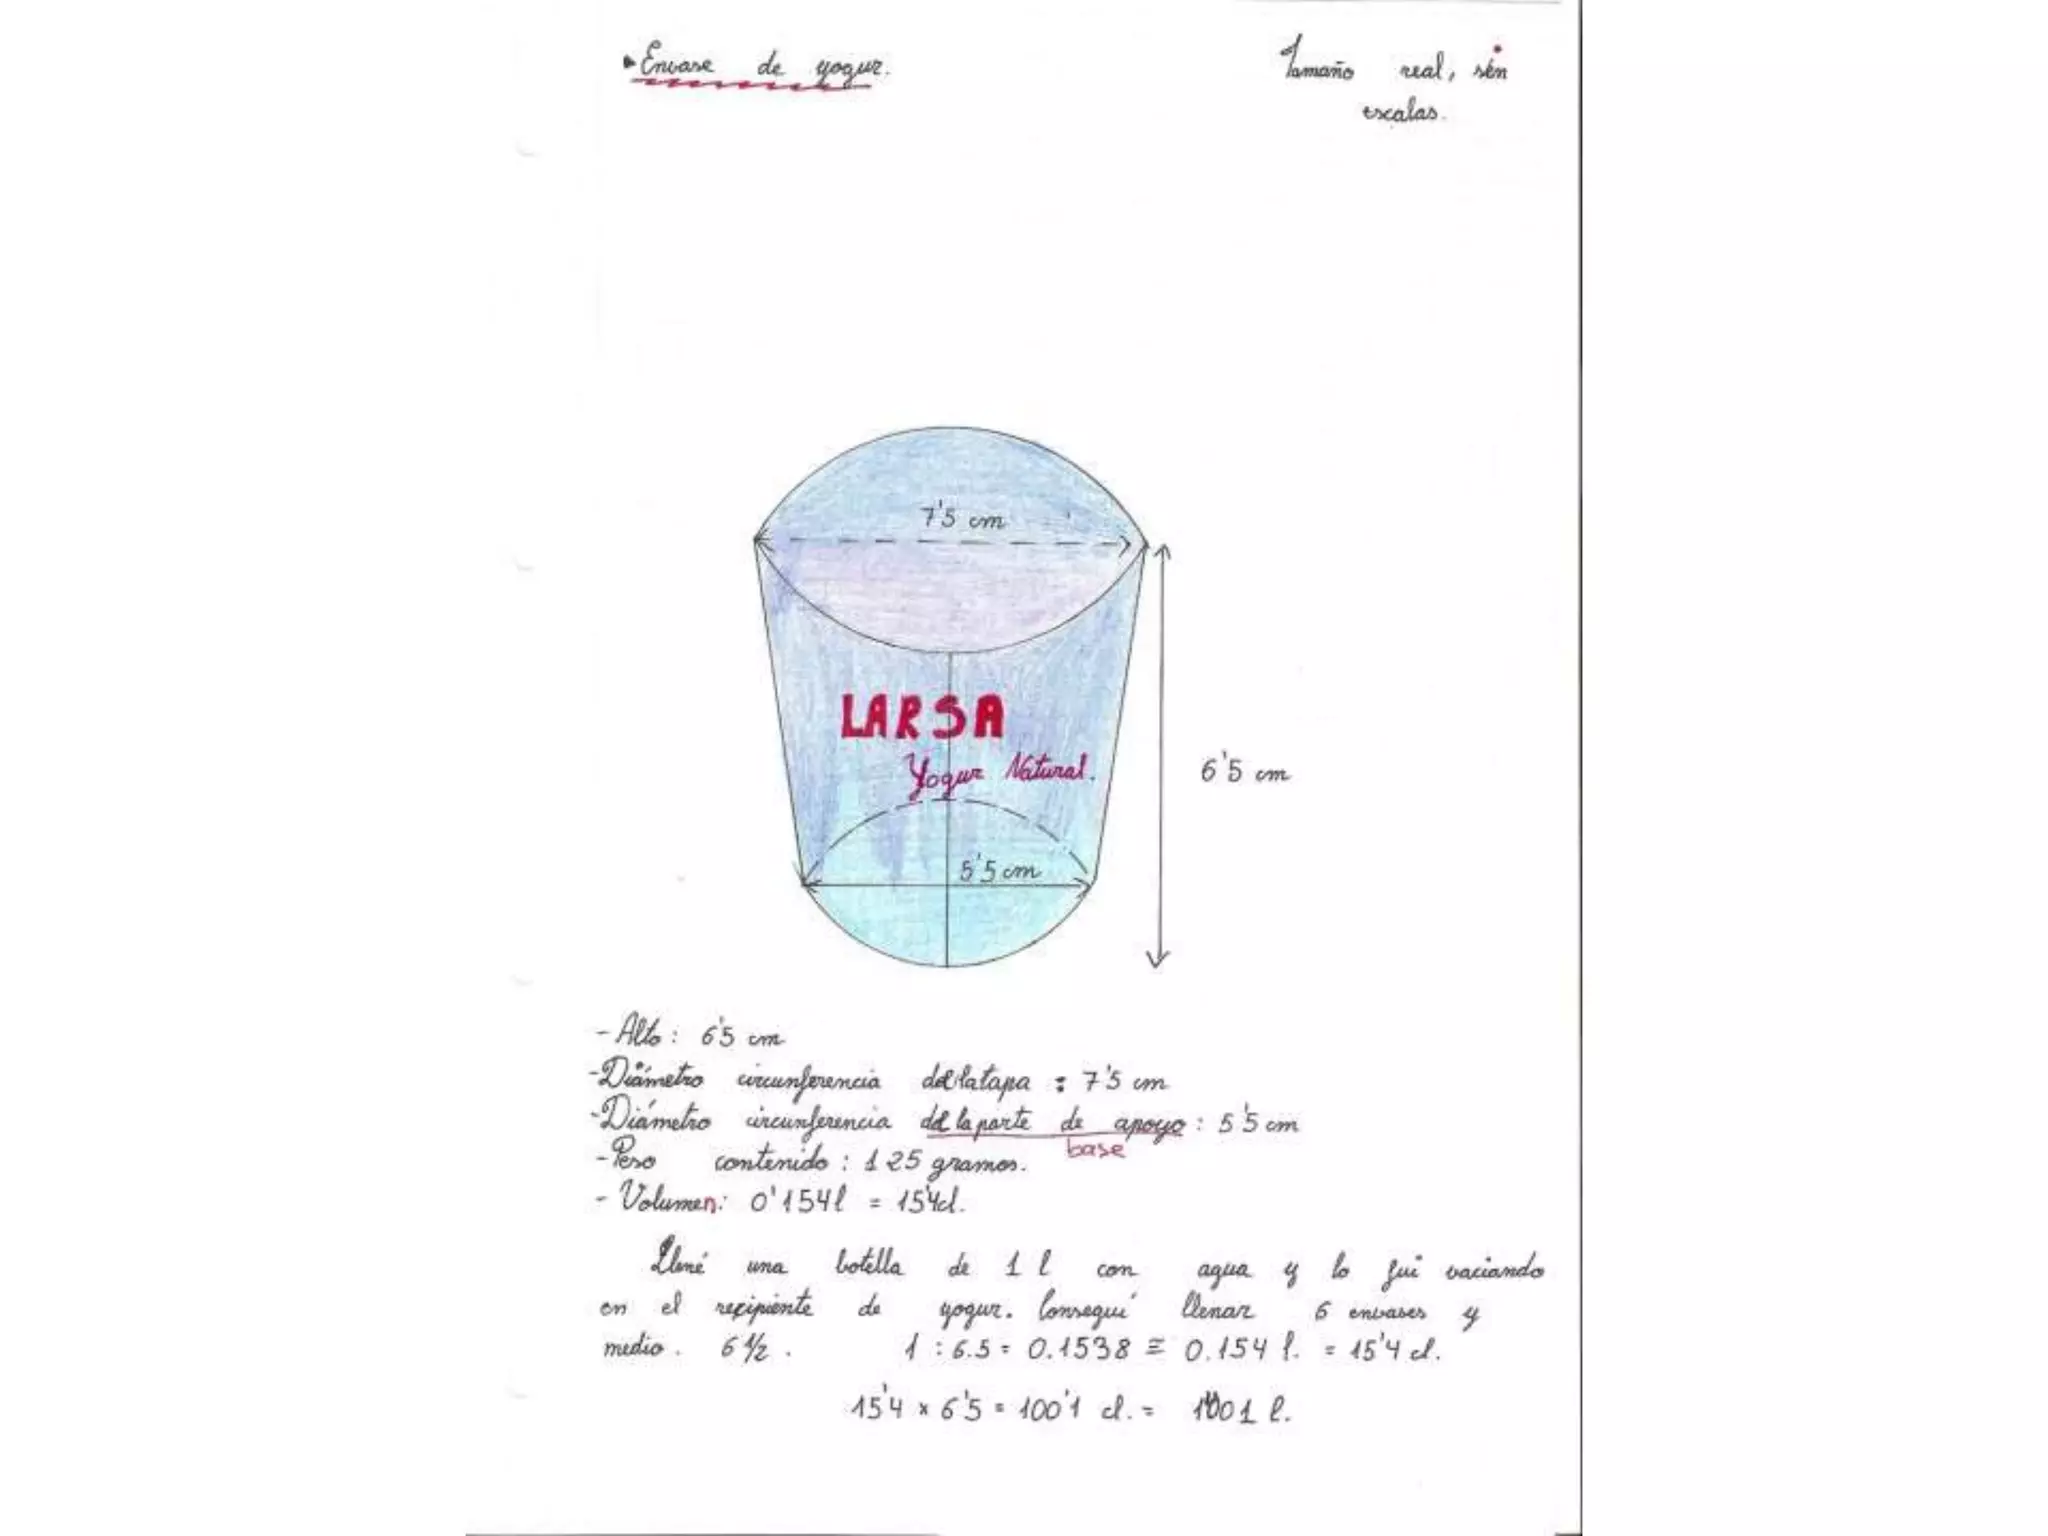 Envase de yogur.
Tamaño real, sin
escalas.
7'5 cm
LARSA
Yogur Natural.
6'5 cm
5'5 cm
- Alto: 6'5 cm
- Diámetro circunferencia de la tapa : 7'5 cm
- Diámetro circunferencia de la parte de apoyo : 5'5 cm
base
- Peso contenido : 125 gramos.
- Volumen: 0'154 l = 15'4 cl.
Llené una botella de 1 l con agua y lo fui vaciando
en el recipiente de yogur. Conseguí llenar 6 envases y
medio. 6 1/2 . 1 : 6.5 = 0.1538 ≅ 0.154 l. = 15'4 cl.
15'4 x 6'5 = 100'1 cl. = l.